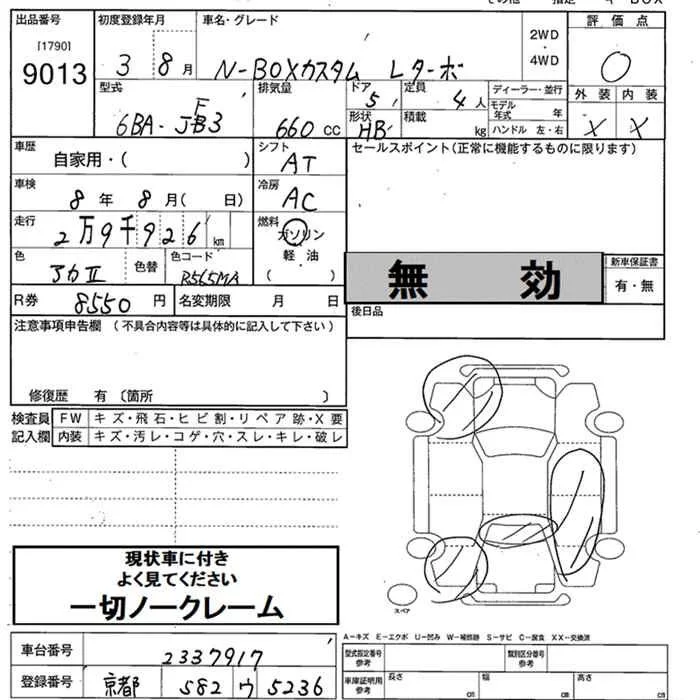 出品番号
[1790]
9013
初度登録年月
3 8月
車名・グレード
N-BOXカスタム Lターボ
2WD
・
4WD
評価点
○
型式
6BA-JF3
排気量
660cc
ドア
5
形状
HB
定員
4人
積載
kg
ディーラー・並行
モデル年式 年
ハンドル 左・右
外装 内装
X X
車歴
自家用・( )
シフト
AT
セールスポイント(正常に機能するものに限ります)
車検
8年 8月( 日)
冷房
AC
走行
2万9千926km
燃料
ガソリン
軽油
( )
色
アカII
色替
色コード
R565MA
無効
新車保証書
有・無
R券
8550円
名変期限 月 日
後日品
注意事項申告欄 (不具合内容等は具体的に記入して下さい)
修復歴 有 〔箇所 〕
検査員
記入欄
FW キズ・飛石・ヒビ割・リペア跡・X要
内装 キズ・汚レ・コゲ・穴・スレ・キレ・破レ
現状車に付き
よく見てください
一切ノークレーム
スペア
A-キズ E-エクボ U-凹み W-補修跡 S-サビ C-腐食 XX-交換済
車台番号
2337917
登録番号
京都 582 ウ 5236
型式指定番号
参考
類別区分番号
参考
車庫証明用
参考
長さ cm
幅 cm
高さ cm